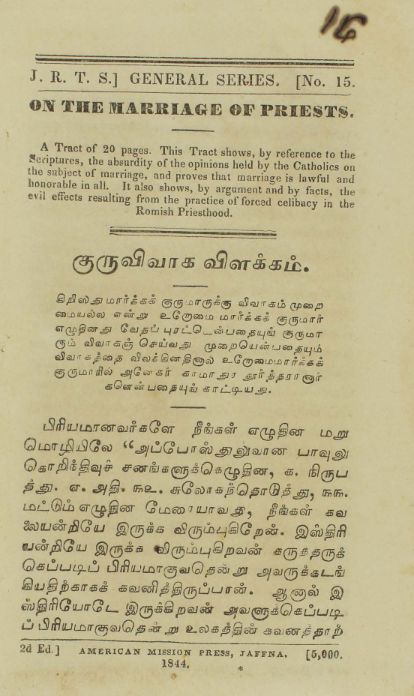 16
J. R. T. S.] GENERAL SERIES. [No. 15.
ON THE MARRIAGE OF PRIESTS.
A Tract of 20 pages. This Tract shows, by reference to the
Scriptures, the absurdity of the opinions held by the Catholics on
the subject of marriage, and proves that marriage is lawful and
honorable in all. It also shows, by argument and by facts, the
evil effects resulting from the practice of forced celibacy in the
Romish Priesthood.
குருவிவாக விளக்கம்.
கிறிஸ்து மார்க்கக் குருமாருக்கு விவாகம் முறை
மையல்ல என்று உரோமை மார்க்கக் குருமார்
எழுதினது வேதப் புரட்டென்பதையுங் குருமா
ரும் விவாகஞ் செய்வது முறையென்பதையும்
விவாகத்தை விலக்கினதினால் உரோமைமார்க்கக்
குருமாரில் அனேகர் காமாதுர தூர்த்தரானார்
களென்பதையுங் காட்டியது.
பிரியமானவர்களே நீங்கள் எழுதின மறு
மொழியிலே “அப்போஸ்துலுவான பாவுலு
கொறிந்திவுச் சனங்களுக்கெழுதின, க. நிருப
த்து. எ. அதி. ௩௨. சுலோகந்தொடுத்து, ௩௩.
மட்டும் எழுதின மேரையாவது, நீங்கள் கவ
லையன்றியே இருக்க விரும்புகிறேன். இஸ்திரி
யன்றியே இருக்க விரும்புகிறவன் கருத்தருக்
கெப்படிப் பிரியமாகுவதென்று அவருக்கடங்
கியதிற்காகக் கவனித்திருப்பான். ஆனால் இ
ஸ்திரியோடே இருக்கிறவன் அவளுக்கெப்படி
ப் பிரியமாகுவதென்று உலகத்தின் கவனத்தாற்
2d Ed.] AMERICAN MISSION PRESS, JAFFNA. [5,000.
1844.